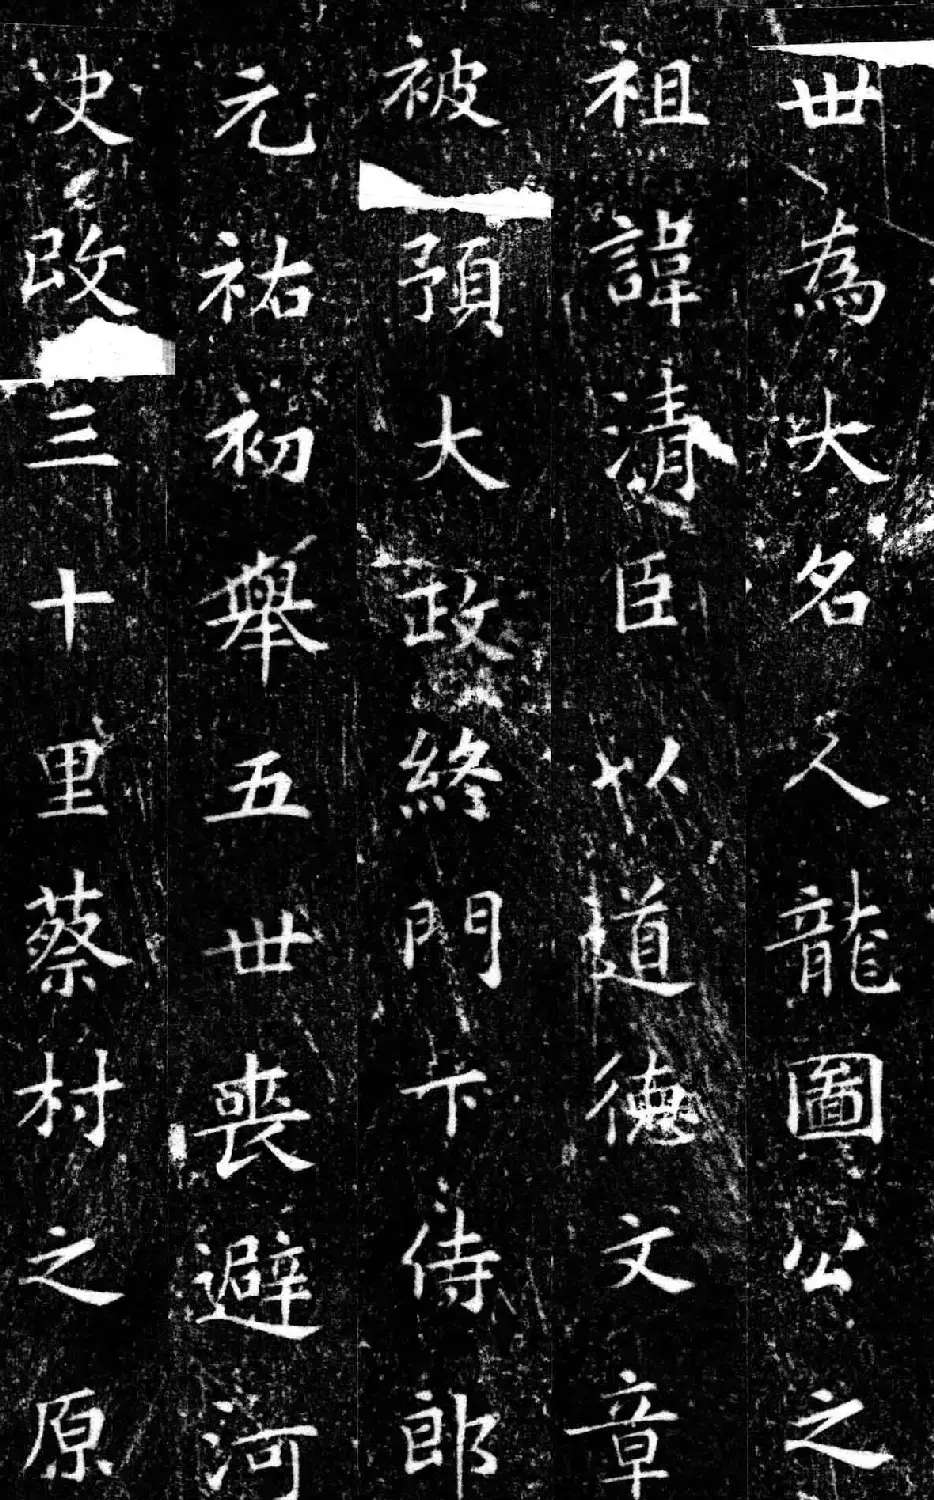 世為大名人龍圖公之
祖諱清臣以道德文章
被預大政終門下侍郎
元祐初舉五世喪避河
決改三十里蔡村之原